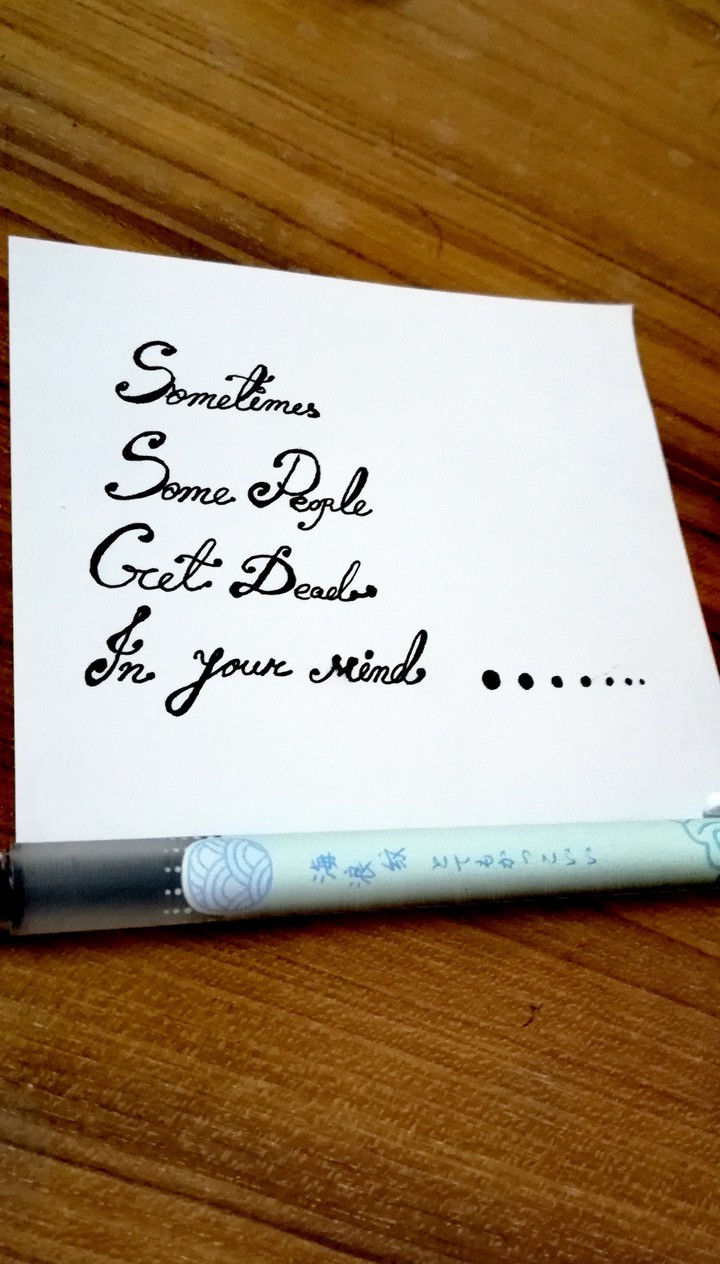 Sometimes
Some People
Get Dead
In your mind .......
海浪纹 とてもかっこいい